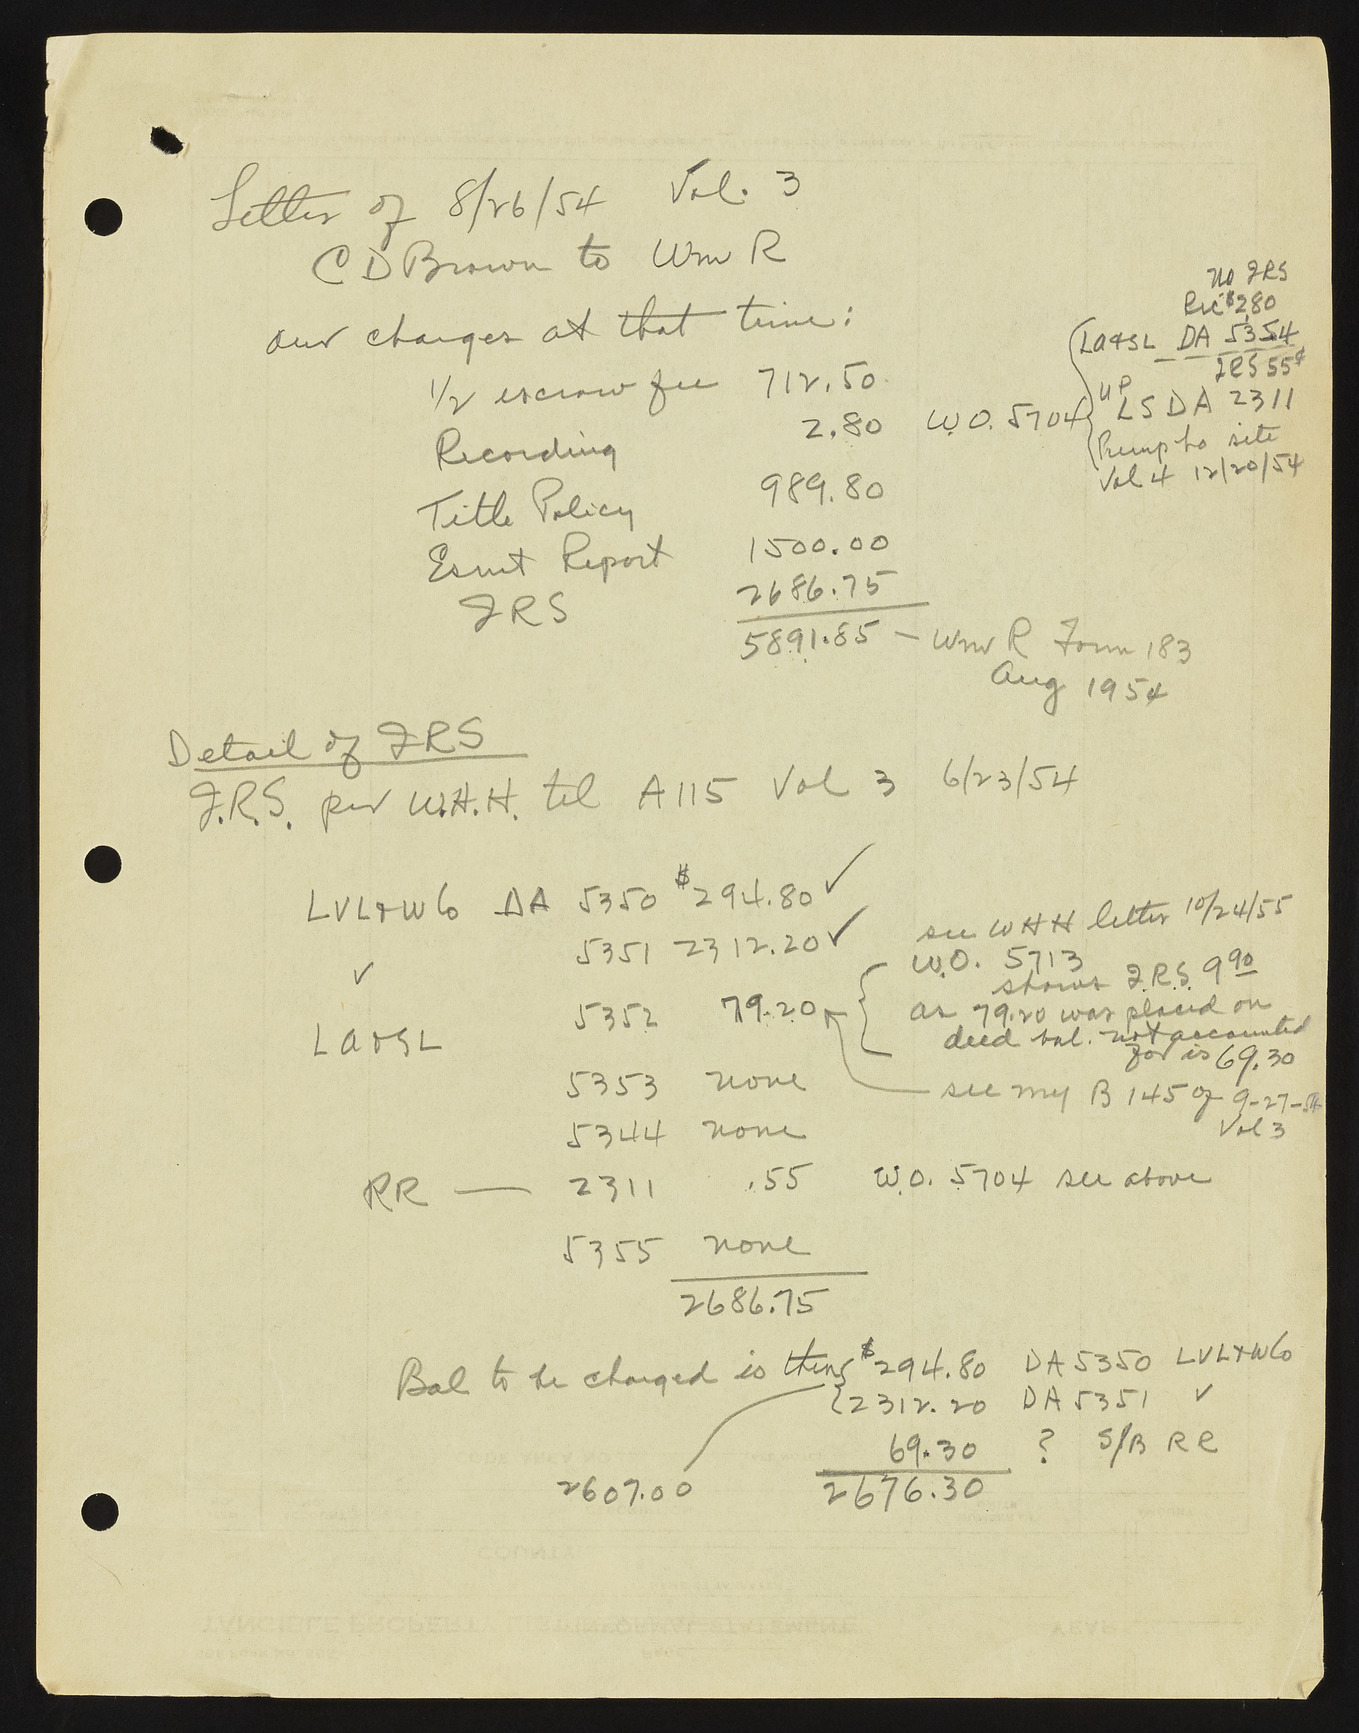 Letter of 8/26/54 Vol. 3
C D Brown to Wm R
our charges at that time:
1/2 escrow fee 712.50
Recording 2.80 W.O. 5704
no IRS
Rec $2.80
LA&SL DA 5354
IRS 55¢
UP
LS DA 2311
Pump ho site
Vol 4 12/20/54
Title Policy 989.80
Esmt Report 1500.00
IRS 2686.75
5891.85 — Wm R Form 183
Aug 1954
Detail of IRS
I.R.S. per W.H.H. tel A115 Vol 3 6/23/54
LVL&WCo DA 5350 $294.80 ✓
✓ 5351 2312.20 ✓
LA&SL 5352 79.20
see WHH letter 10/24/55
W.O. 5713
shows I.R.S. 9.90
as 79.20 was placed on
deed bal. not accounted
for is 69.30
5353 none
see my B 145 of 9-27-54
Vol 3
5344 none
RR — 2311 .55 W.O. 5704 see above
5355 none
2686.75
Bal to be charged is thus $294.80 DA 5350 LVL&WCo
2312.20 DA 5351 ✓
69.30 ? S/B RR
2607.00 2676.30
COUNTY
TANGIBLE PROPERTY
YEAR